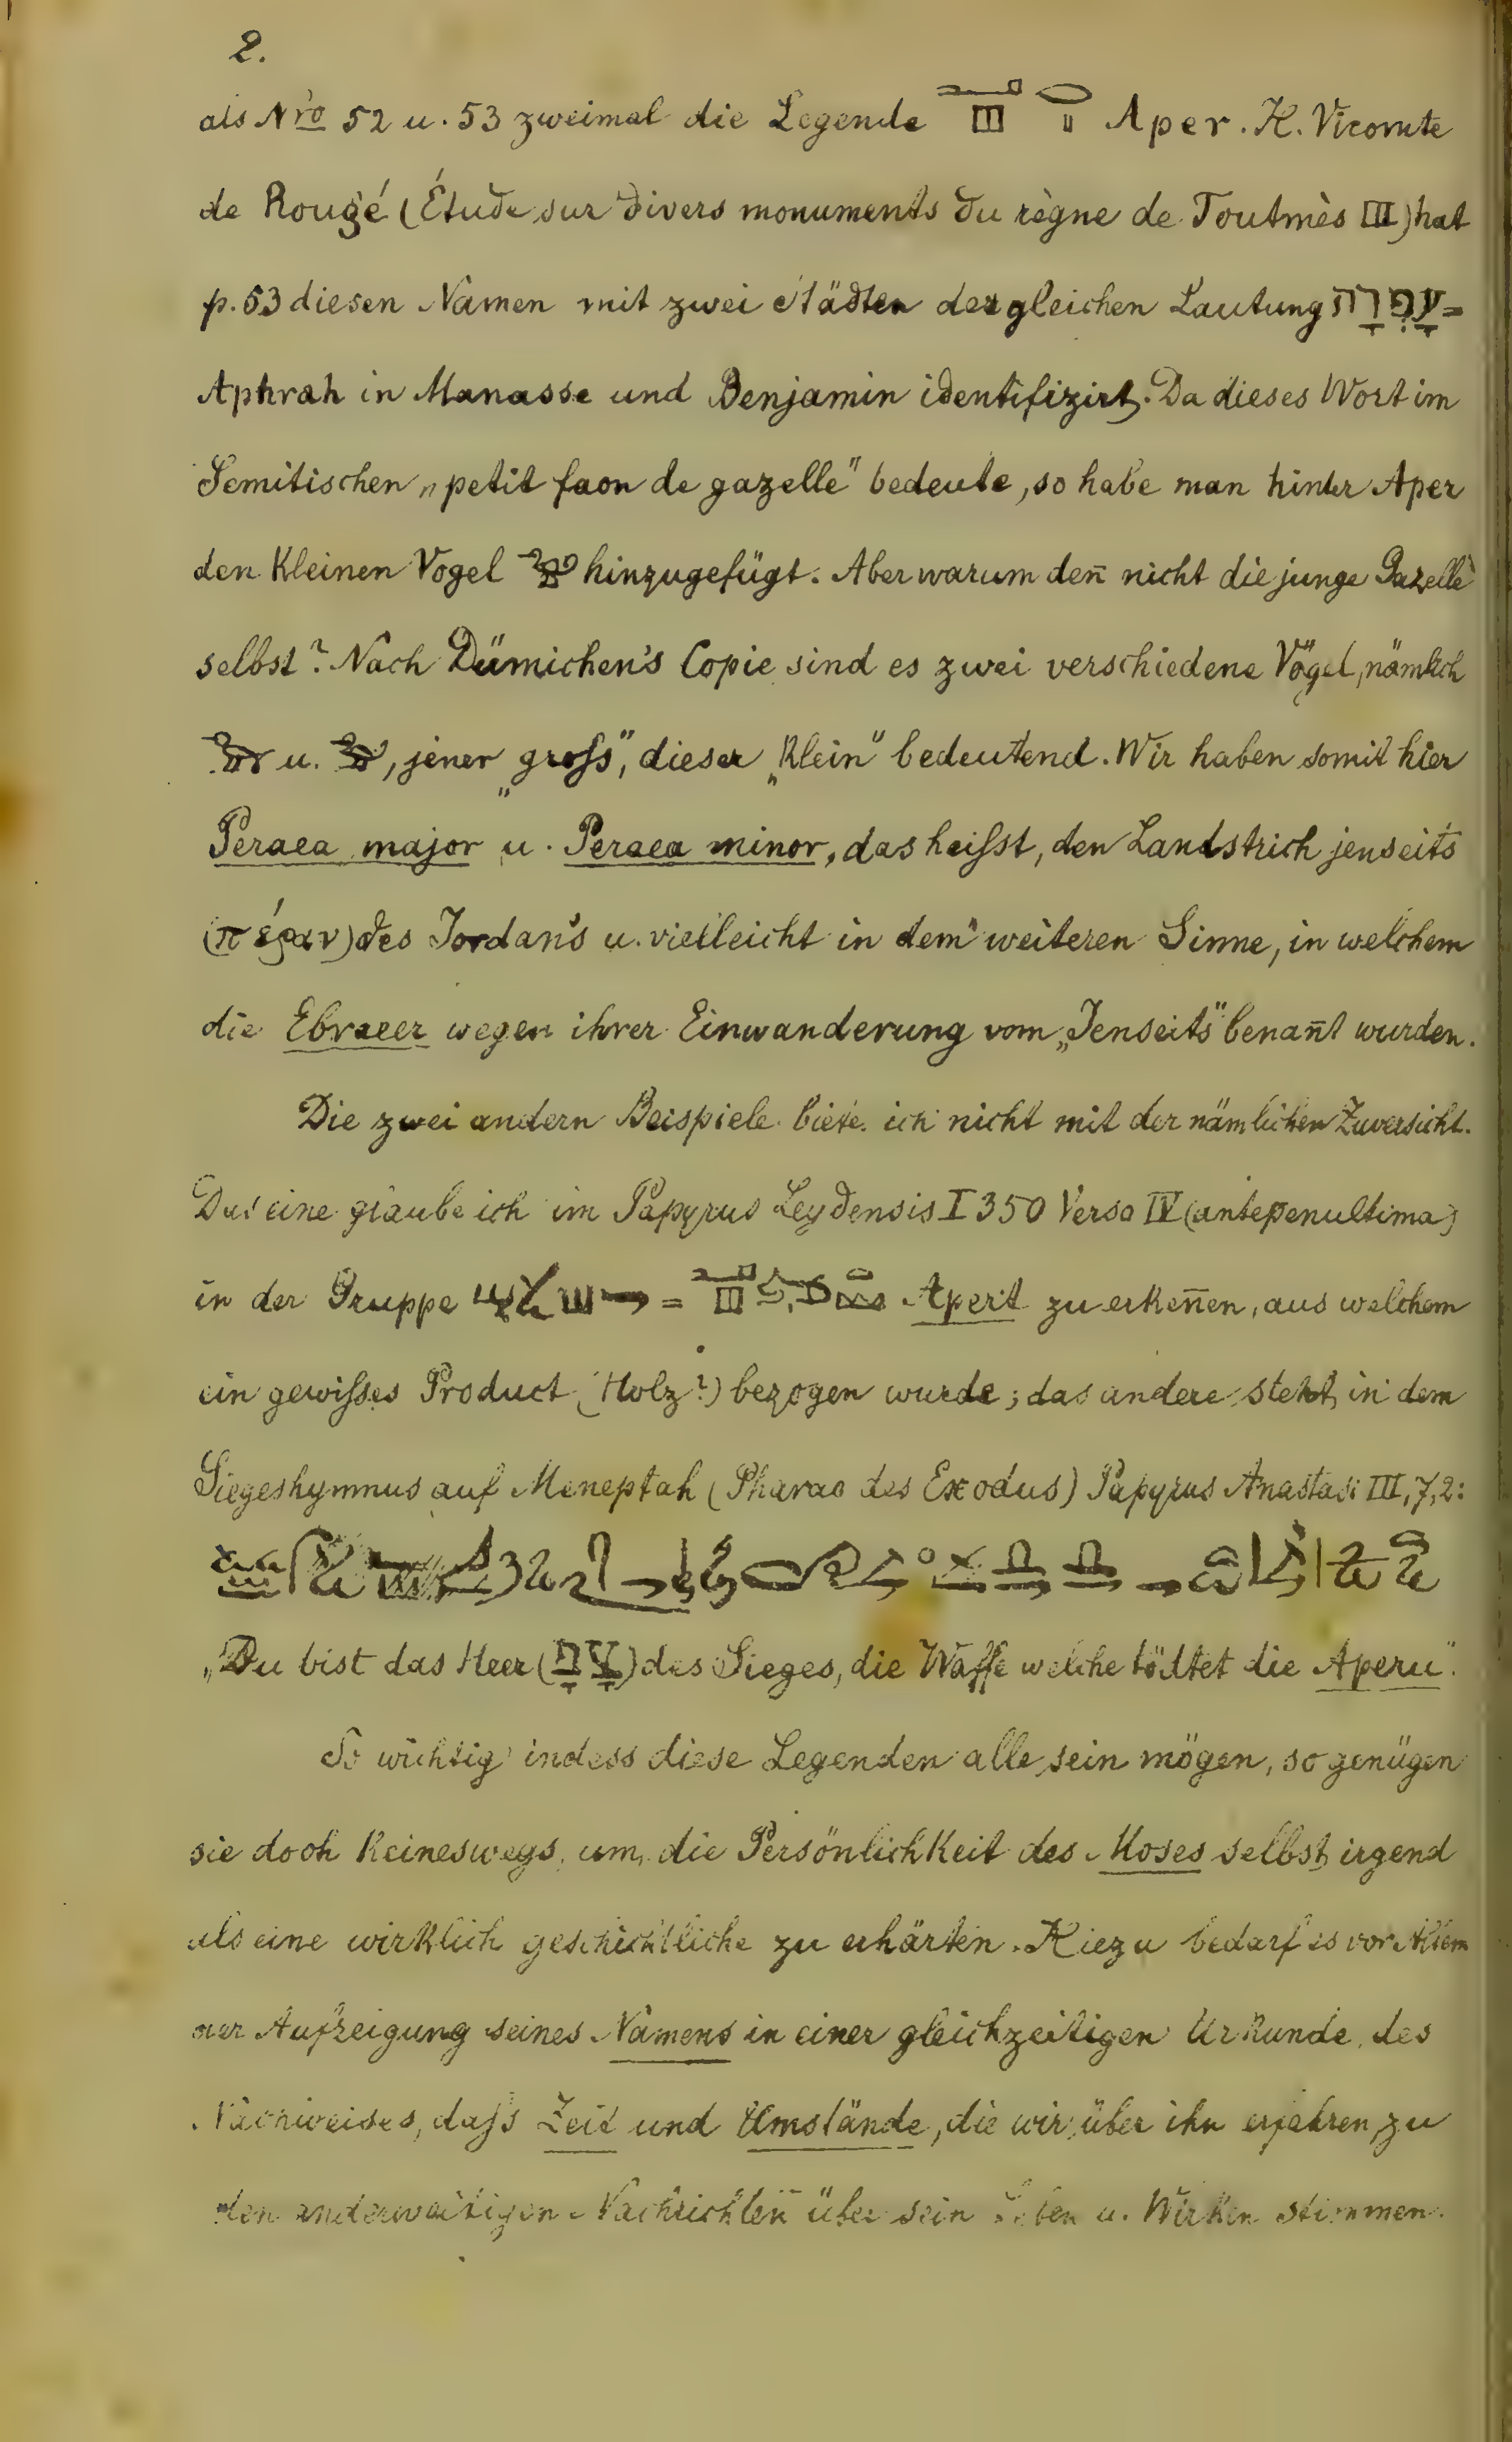 2.
als Nro 52 u. 53 zweimal die Legende Aper. H. Vicomte
de Rougé (Étude sur divers monuments du règne de Toutmès III) hat
p. 53 diesen Namen mit zwei Städten der gleichen Lautung עָפְרָה =
Aphrah in Manasse und Benjamin identifizirt. Da dieses Wort im
Semitischen „petit faon de gazelle" bedeute, so habe man hinter Aper
den kleinen Vogel hinzugefügt. Aber warum den̄ nicht die junge Gazelle
selbst? Nach Dümichen's Copie sind es zwei verschiedene Vögel, nämlich
u. , jener „groſs", dieser „klein" bedeutend. Wir haben somit hier
Peraea major u. Peraea minor, das heiſst, den Landstrich jenseits
(πέραν) des Jordan's u. vielleicht in dem weiteren Sinne, in welchem
die Ebraeer wegen ihrer Einwanderung vom „Jenseits" benan̄t wurden.
Die zwei andern Beispiele biete ich nicht mit der nämlichen Zuversicht.
Das eine glaube ich im Papyrus Leydensis I 350 Verso IV (antepenultima)
in der Gruppe = Aperit zu erken̄en, aus welchem
ein gewiſses Product (Holz?) bezogen wurde; das andere steht in dem
Siegeshymnus auf Meneptah (Pharao des Exodus) Papyrus Anastasi III, 7, 2:
„Du bist das Heer () des Sieges, die Waffe welche tödtet die Aperu".
So wichtig indess diese Legenden alle sein mögen, so genügen
sie doch keineswegs, um die Persönlichkeit des Moses selbst irgend
als eine wirklich geschichtliche zu erhärten. Hiezu bedarf es vor Allem
der Aufzeigung seines Namens in einer gleichzeitigen Urkunde, des
Nachweises, daſs Zeit und Umstände, die wir über ihn erfahren, zu
den anderweitigen Nachrichten über sein Leben u. Wirken stimmen.